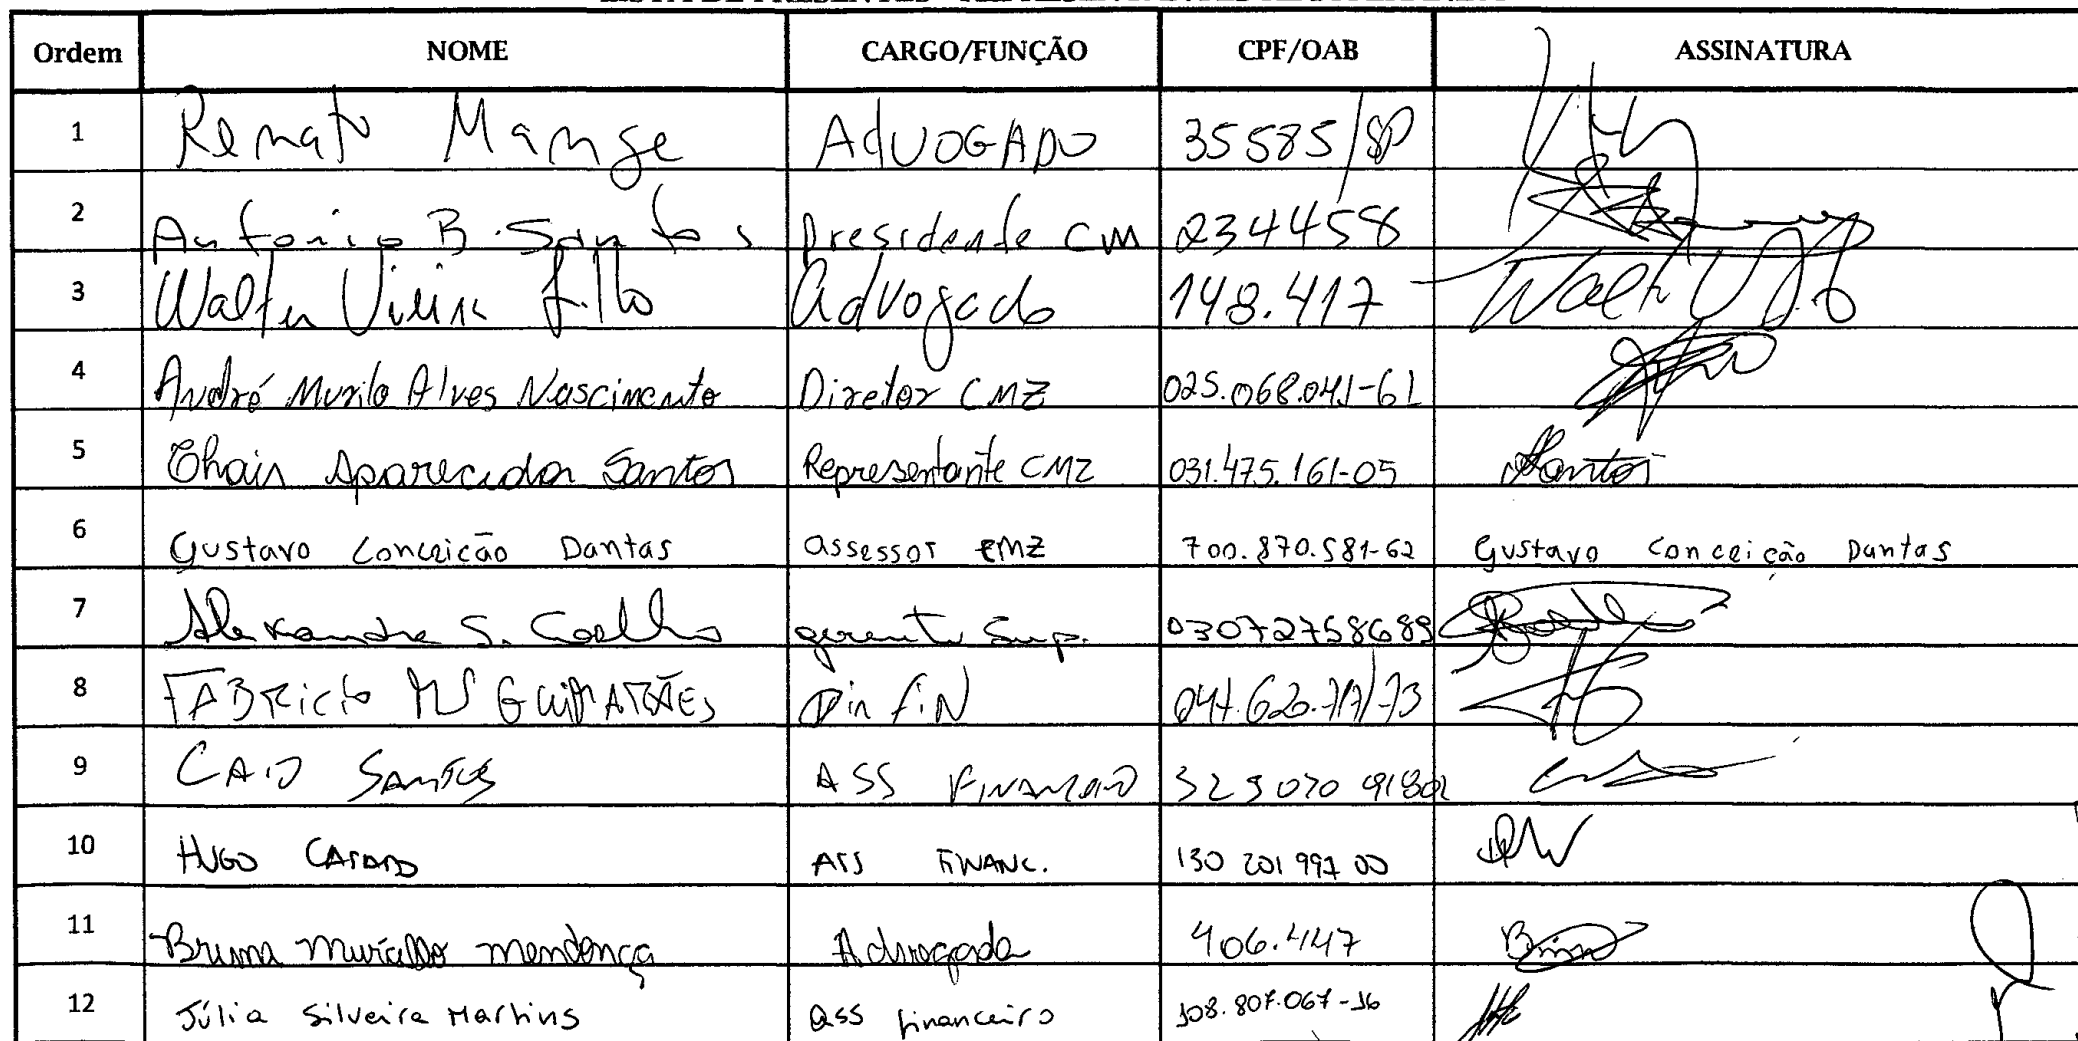 Ordem NOME CARGO/FUNÇÃO CPF/OAB ASSINATURA
1 Renato Mange AdVOGADO 35585/SP
2 Antonio B. Santos Presidente CM 234458
3 Walter Vieira filho advogado 148.417 Walter V
4 André Murilo Alves Nascimento Diretor CMZ 025.068.041-61
5 Thais Aparecida Santos Representante CMZ 031.475.161-05 Santos
6 Gustavo Conceição Dantas assessor CMZ 700.870.581-62 Gustavo Conceição Dantas
7 Alexandre S. Coelho gerente Sup. 03072758689
8 FABRicio MS GUIMARÃES Dir fiN
9 CAIO SANTOS ASS FINANCEIRO
10 HUGO ASS FINANC. 130 201 997 00
11 Bruna mendonça Advogada 406.447
12 Júlia Silveira Martins ass financeiro 108.807.067-16